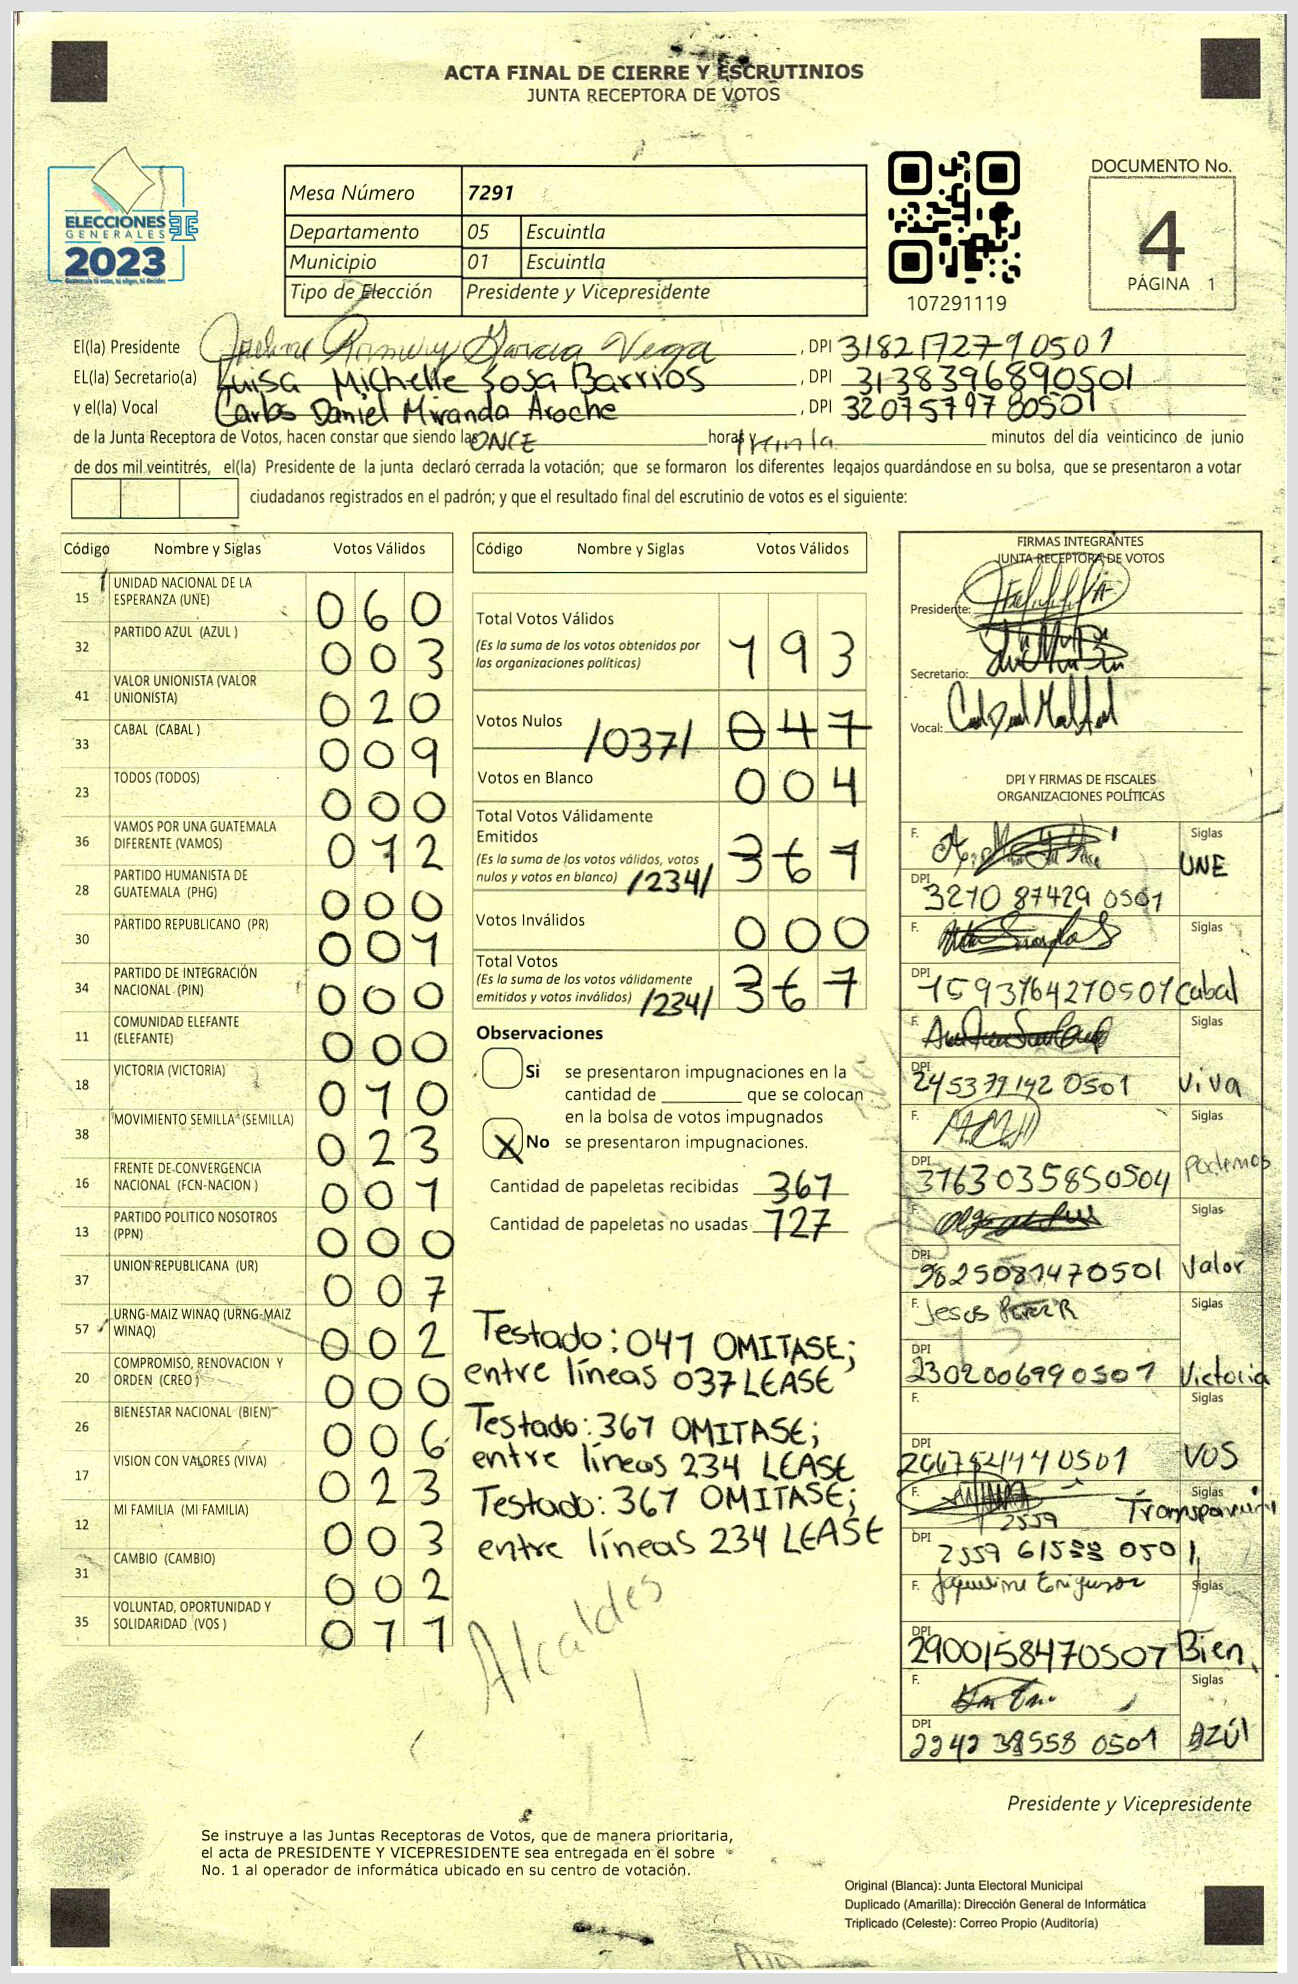 ACTA FINAL DE CIERRE Y ESCRUTINIOS
JUNTA RECEPTORA DE VOTOS
ELECCIONES
GENERALES
2023
Guatemala tú votas, tú eliges, tú decides
Mesa Número 7291
Departamento 05 Escuintla
Municipio 01 Escuintla
Tipo de Elección Presidente y Vicepresidente
107291119
DOCUMENTO No.
4
PÁGINA 1
El(la) Presidente Garcia Vega, DPI 3182172790501
EL(la) Secretario(a) Luisa Michelle Sosa Barrios, DPI 3138396890501
y el(la) Vocal Carlos Daniel Miranda Aroche, DPI 3207579780501
de la Junta Receptora de Votos, hacen constar que siendo las ONCE horas y treinta minutos del día veinticinco de junio
de dos mil veintitrés, el(la) Presidente de la junta declaró cerrada la votación; que se formaron los diferentes legajos guardándose en su bolsa, que se presentaron a votar
ciudadanos registrados en el padrón; y que el resultado final del escrutinio de votos es el siguiente:
Código Nombre y Siglas Votos Válidos
15 UNIDAD NACIONAL DE LA ESPERANZA (UNE) 060
32 PARTIDO AZUL (AZUL ) 003
41 VALOR UNIONISTA (VALOR UNIONISTA) 020
33 CABAL (CABAL ) 009
23 TODOS (TODOS) 000
36 VAMOS POR UNA GUATEMALA DIFERENTE (VAMOS) 012
28 PARTIDO HUMANISTA DE GUATEMALA (PHG) 000
30 PARTIDO REPUBLICANO (PR) 001
34 PARTIDO DE INTEGRACIÓN NACIONAL (PIN) 000
11 COMUNIDAD ELEFANTE (ELEFANTE) 000
18 VICTORIA (VICTORIA) 010
38 MOVIMIENTO SEMILLA (SEMILLA) 023
16 FRENTE DE CONVERGENCIA NACIONAL (FCN-NACION ) 001
13 PARTIDO POLITICO NOSOTROS (PPN) 000
37 UNION REPUBLICANA (UR) 007
57 URNG-MAIZ WINAQ (URNG-MAIZ WINAQ) 002
20 COMPROMISO, RENOVACION Y ORDEN (CREO ) 000
26 BIENESTAR NACIONAL (BIEN) 006
17 VISION CON VALORES (VIVA) 023
12 MI FAMILIA (MI FAMILIA) 003
31 CAMBIO (CAMBIO) 002
35 VOLUNTAD, OPORTUNIDAD Y SOLIDARIDAD (VOS ) 011
Código Nombre y Siglas Votos Válidos
Total Votos Válidos
(Es la suma de los votos obtenidos por
las organizaciones políticas) 193
Votos Nulos /037/ 047
Votos en Blanco 004
Total Votos Válidamente
Emitidos
(Es la suma de los votos válidos, votos
nulos y votos en blanco) /234/ 361
Votos Inválidos 000
Total Votos
(Es la suma de los votos válidamente
emitidos y votos inválidos) /234/ 367
Observaciones
Si se presentaron impugnaciones en la
cantidad de ________ que se colocan
en la bolsa de votos impugnados
X No se presentaron impugnaciones.
Cantidad de papeletas recibidas 361
Cantidad de papeletas no usadas 127
Testado: 041 OMITASE;
entre líneas 037 LEASE
Testado: 361 OMITASE;
entre líneas 234 LEASE
Testado: 361 OMITASE;
entre líneas 234 LEASE
Alcaldes
FIRMAS INTEGRANTES
JUNTA RECEPTORA DE VOTOS
Presidente:
Secretario:
Vocal:
DPI Y FIRMAS DE FISCALES
ORGANIZACIONES POLÍTICAS
F. Siglas
UNE
DPI 3210 87429 0501
F. Siglas
DPI 1593764270501 Cabal
F. Siglas
DPI 245379142 0501 Viva
F. Siglas
DPI 3163035850504 Podemos
F. Siglas
DPI 9825081470501 Valor
F. Jesus Perez R Siglas
DPI 2302006990501 Victoria
F. Siglas
DPI 0501 VOS
F. Siglas
2559
DPI 2559 0501
F. Jaqueline Siglas
DPI 2900158470507 Bien
F. Siglas
DPI 2242 38558 0501 AZÚl
Presidente y Vicepresidente
Se instruye a las Juntas Receptoras de Votos, que de manera prioritaria,
el acta de PRESIDENTE Y VICEPRESIDENTE sea entregada en el sobre
No. 1 al operador de informática ubicado en su centro de votación.
Original (Blanca): Junta Electoral Municipal
Duplicado (Amarilla): Dirección General de Informática
Triplicado (Celeste): Correo Propio (Auditoría)